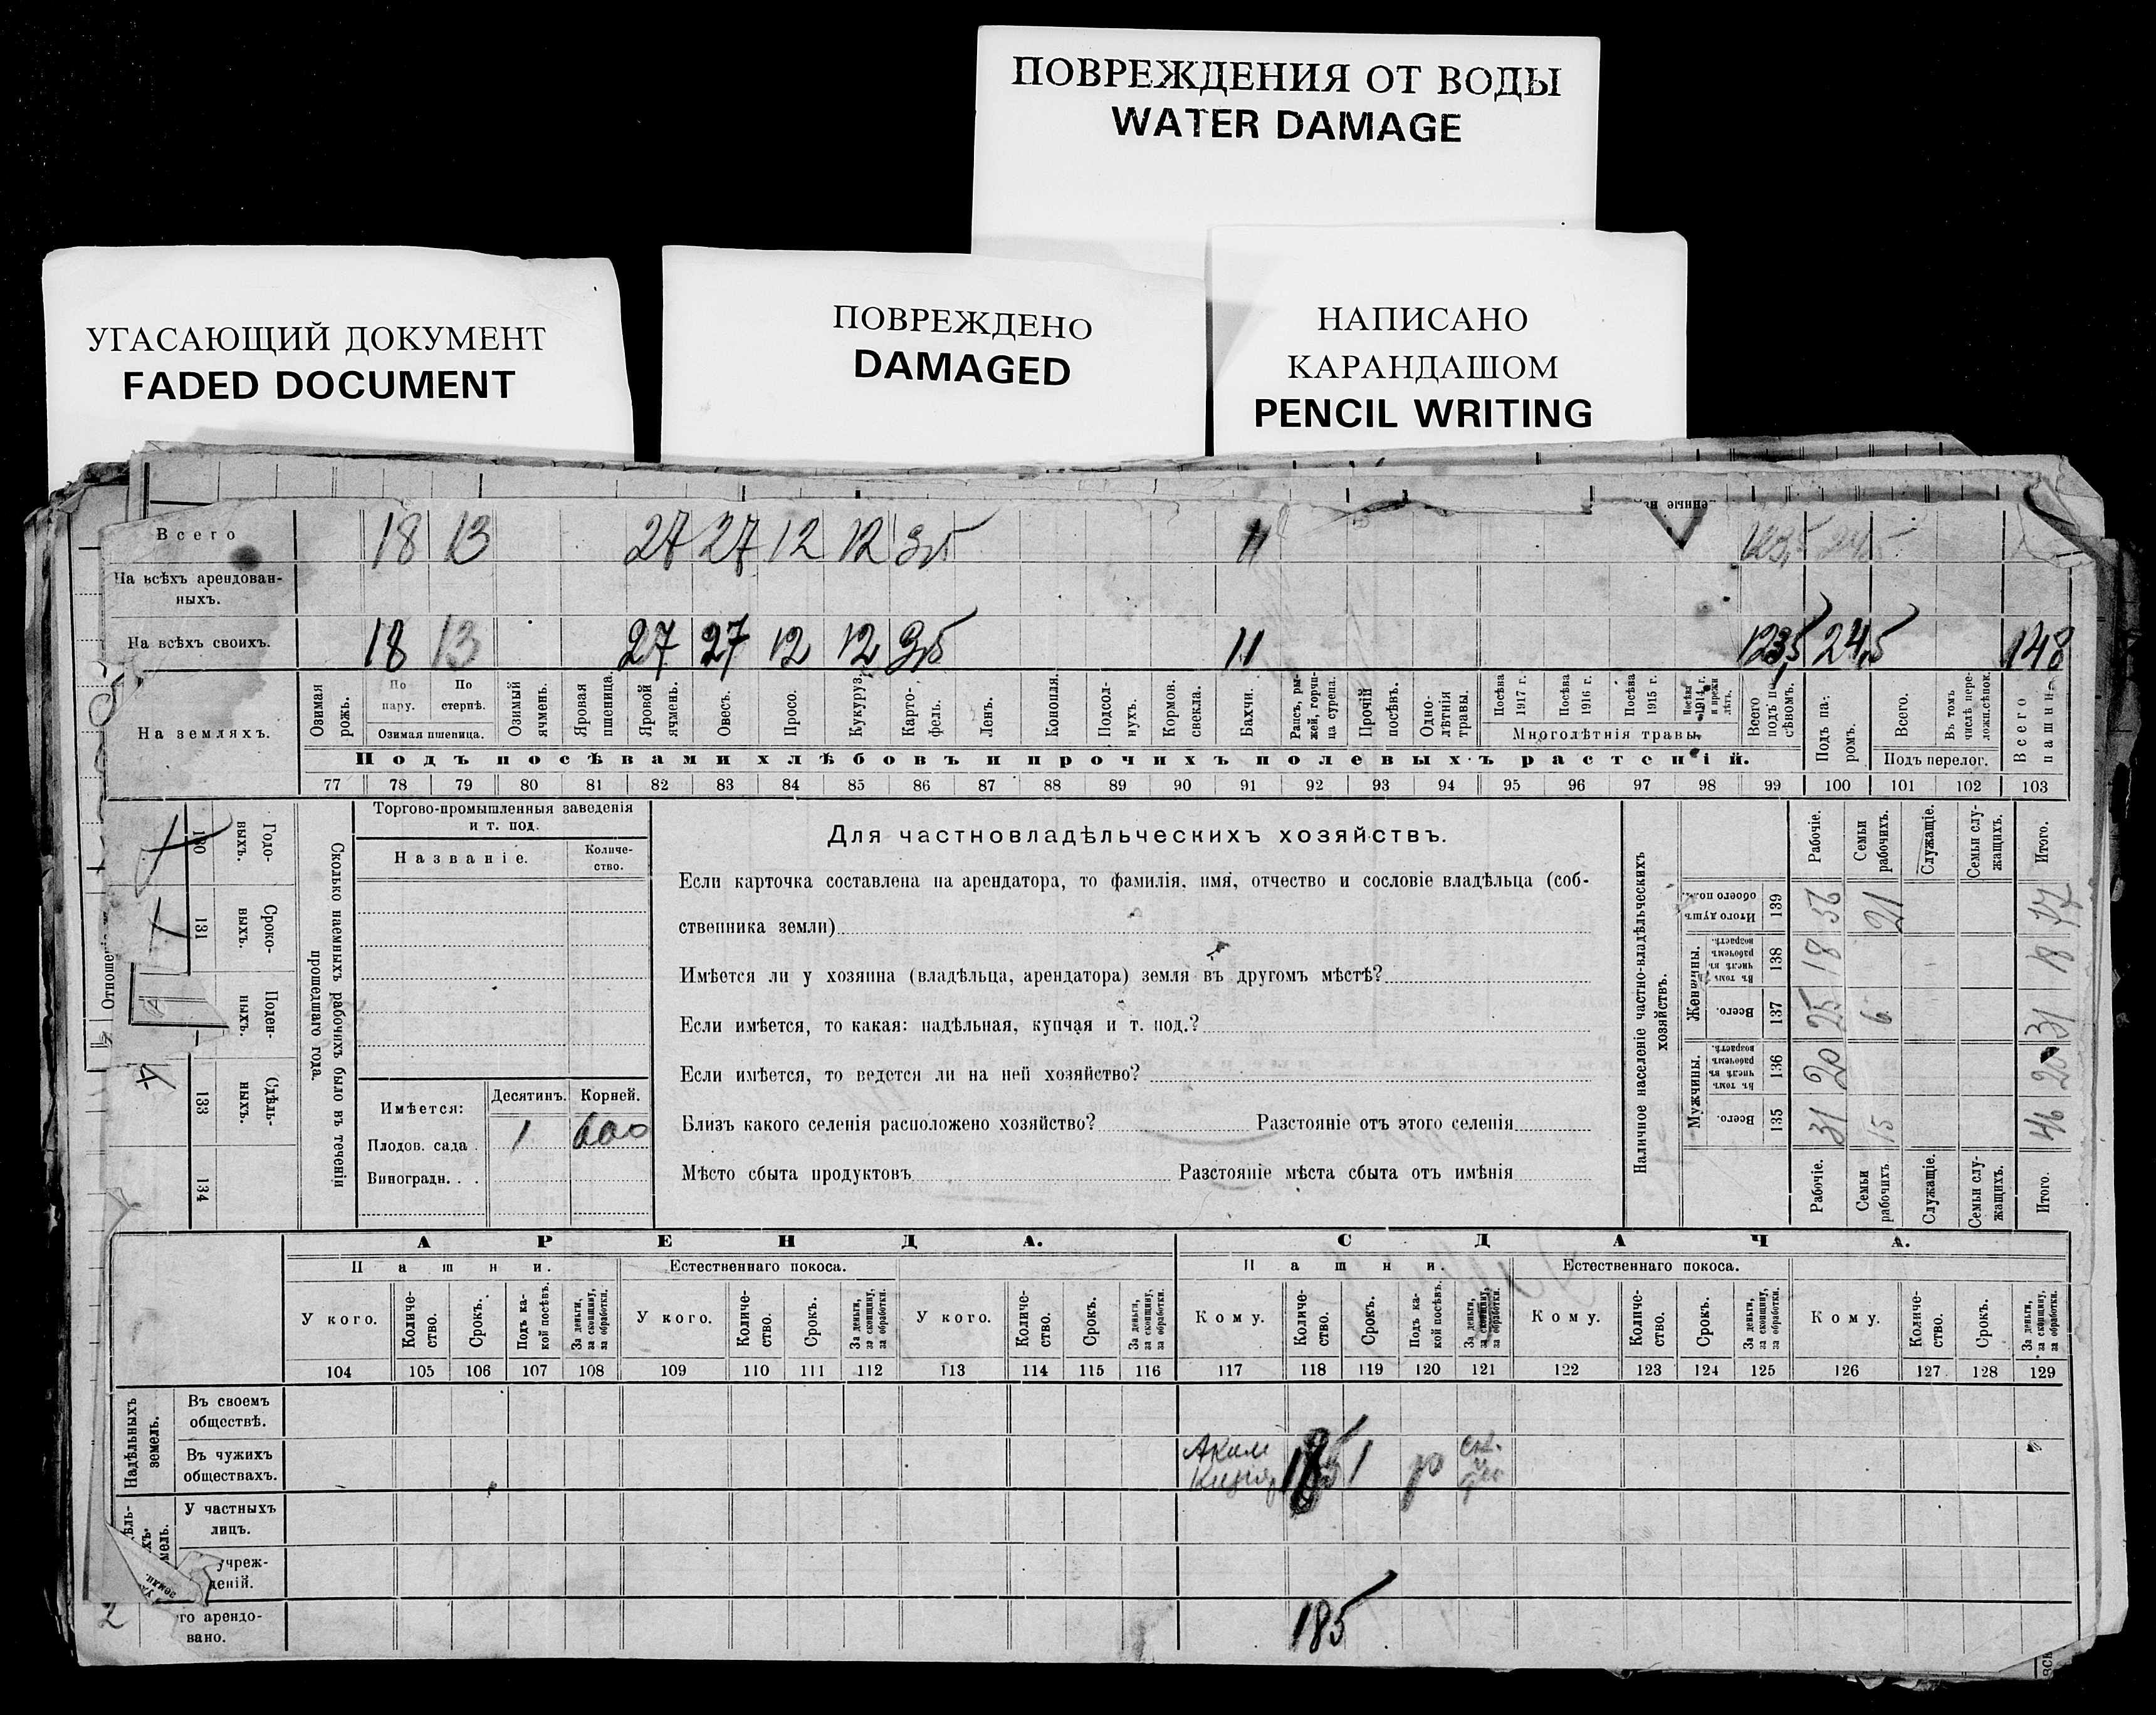 ПОВРЕЖДЕНИЯ ОТ ВОДЫ
WATER DAMAGE
УГАСАЮЩИЙ ДОКУМЕНТ
FADED DOCUMENT
ПОВРЕЖДЕНО
DAMAGED
НАПИСАНО
КАРАНДАШОМ
PENCIL WRITING
Всего 18 13 27 27 12 12 3,5 11 123,5 24,5
На всѣхъ арендован-
ныхъ.
На всѣхъ своихъ. 18 13 27 27 12 12 3,5 11 123,5 24,5 148
На земляхъ.
Озимая рожь.
По пару.
По стернѣ.
Озимая пшеница.
Озимый ячмень.
Яровая пшеница.
Яровой ячмень.
Овесъ.
Просо.
Кукуруз.
Карто-
фель.
Ленъ.
Конопля.
Подсол-
нухъ.
Кормов. свекла.
Бахчи.
Рапсъ, ры-
жей, горчи-
ца сурепа.
Прочій посѣвъ.
Одно-
лѣтнія травы.
Посѣва 1917 г.
Посѣва 1916 г.
Посѣва 1915 г.
Посѣва 1914 г. и прежн лѣтъ.
Многолѣтнія травы.
Всего подъ п-
сѣвомъ.
Подъ па-
ромъ.
Всего.
Въ томъ числѣ пере-
ложн.сѣнок.
Подъ перелог.
Всего пашни.
Подъ посѣвами хлѣбовъ и прочихъ полевыхъ растеній.
77 78 79 80 81 82 83 84 85 86 87 88 89 90 91 92 93 94 95 96 97 98 99 100 101 102 103
Отношені
130 Годо-
выхъ.
131 Сроко-
выхъ.
Поден-
ныхъ.
133 Сдѣль-
ныхъ.
134
Сколько наемныхъ рабочихъ было въ теченіи
прошедшаго года.
Торгово-промышленныя заведенія
и т. под.
Названіе.
Количе-
ство.
Имѣется:
Десятинъ. Корней.
Плодов. сада . 1 600
Виноградн. . .
Для частновладѣльческихъ хозяйствъ.
Если карточка составлена на арендатора, то фамилія, имя, отчество и сословіе владѣльца (соб-
ственника земли)
Имѣется ли у хозяина (владѣльца, арендатора) земля въ другомъ мѣстѣ?
Если имѣется, то какая: надѣльная, купчая и т. под.?
Если имѣется, то ведется ли на ней хозяйство?
Близъ какого селенія расположено хозяйство? Разстояніе отъ этого селенія
Мѣсто сбыта продуктовъ Разстояніе мѣста сбыта отъ имѣнія
Наличное населеніе частно-владѣльческихъ
хозяйствъ.
Рабочіе.
Семьи рабочихъ.
Служащіе.
Семьи слу-
жащихъ.
Итого.
Итого душъ обоего пола. 139 56 21 77
Женщины.
Въ томъ числѣ въ рабочемъ возрастѣ. 138 18 18
Всего. 137 25 6 31
Мужчины.
Въ томъ числѣ въ рабочемъ возрастѣ. 136 20 20
Всего. 135 31 15 46
Рабочіе.
Семьи рабочихъ.
Служащіе.
Семьи слу-
жащихъ.
Итого.
АРЕНДА. СДАЧА.
Пашни. Естественнаго покоса. Пашни. Естественнаго покоса.
У кого.
Количе-
ство.
Срокъ.
Подъ ка-
кой посѣвъ.
За деньги, за скопщину, за обработки.
У кого.
Количе-
ство.
Срокъ.
За деньги, за скопщину, за обработки.
У кого.
Количе-
ство.
Срокъ.
За деньги, за скопщину, за обработки.
Кому.
Количе-
ство.
Срокъ.
Подъ ка-
кой посѣвъ.
За деньги, за скопщину, за обработки.
Кому.
Количе-
ство.
Срокъ.
За деньги, за скопщину, за обработки.
Кому.
Количе-
ство.
Срокъ.
За деньги, за скопщину, за обработки.
104 105 106 107 108 109 110 111 112 113 114 115 116 117 118 119 120 121 122 123 124 125 126 127 128 129
Надѣльныхъ
земель.
Въ своемъ
обществѣ.
Въ чужихъ
обществахъ.
185 1
У частныхъ
лицъ.
учреж-
деній.
го арендо-
вано.
185
2